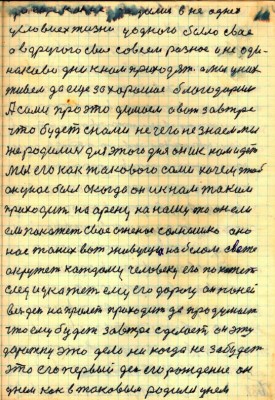 в не одних
условиях жизни у одного было свае
а вдругого свое совсем разное и не оди-
наково дни к ним приходят а мы у них
живем да еще за хорошое благодарим
А сами про это думаем а вот завтра
что будет с нами не чего не знаем мы
же родились для этого дня он и к нам идет
мы его как такового сами хочем чтоб
он у нас был а когда он и к нам таким
приходит на арену на нашу то он ли
ем покажет свае огненое солнышко оно
нас таких вот живущих на белом свете
окружет каждому человеку его покажет
след и укажет ему его дорогу он по ней
веть да прилет приходит да продумает
что ему будет завтра сделает он эту
дорожку это дело ни когда не забудет
это его первый день его рождение он
у нем как в таковым родилс у нем